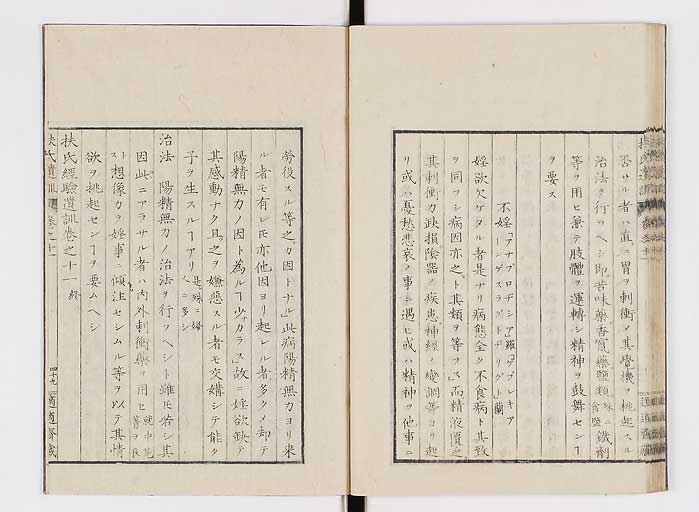 否サル者ハ直ニ胃ヲ刺衝〆其覺機ヲ挑起スル
治法ヲ行フヘシ即苦味藥香竄藥鹽類殊ニ食鹽鐵劑
等ヲ用ヒ兼テ肢體ヲ運轉シ精神ヲ鼓舞センヿ
ヲ要ス
不婬
婬欲欠ケタル者是ナリ病態全ク不食病ト其致
ヲ同フシ病因亦之ト其類ヲ等フス而精液匱乏
其刺衝力缺損陰器ノ疾患神經ノ變調等ヨリ起
リ或ハ憂愁悲哀ノ事ニ遇ヒ或ハ精神ヲ他事ニ
勞役スル等之カ因トナル此病陽精無力ヨリ来
ル者モ有レ𪜈亦他因ヨリ起レル者多ク〆却テ
陽精無力ノ因ト為ルヿ少カラス故ニ婬欲缺テ
其感動ナク且之ヲ嫌惡スル者モ交媾シテ能ク
子ヲ生スルヿアリ是殊ニ婦人ニ多シ
治法 陽精無力ノ治法ヲ行フヘシト雖𪜈若シ其
因此ニアラサル者ハ内外刺衝藥ヲ用ヒ
ト想像力ヲ婬事ニ傾注セシムル等ヲ以テ其情
欲ヲ挑起センヿヲ要ムヘシ
扶氏經驗遺訓巻之十一 終
扶氏遺訓 巻之十一 四十九 適適齋藏